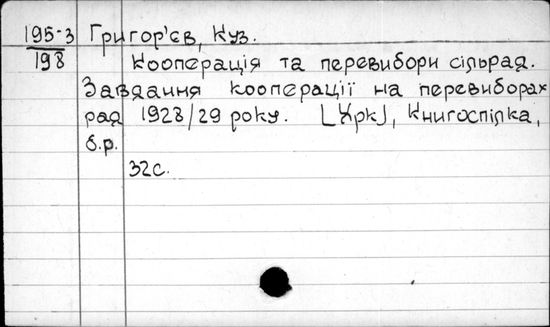 195-3 Григор'єв, Куз.
198 Кооперація та перевибори сільрад.
Завдання кооперації на перевиборах
рад 1928/29 року. [Хрк], Книгоспілка,
б.р.
32с.